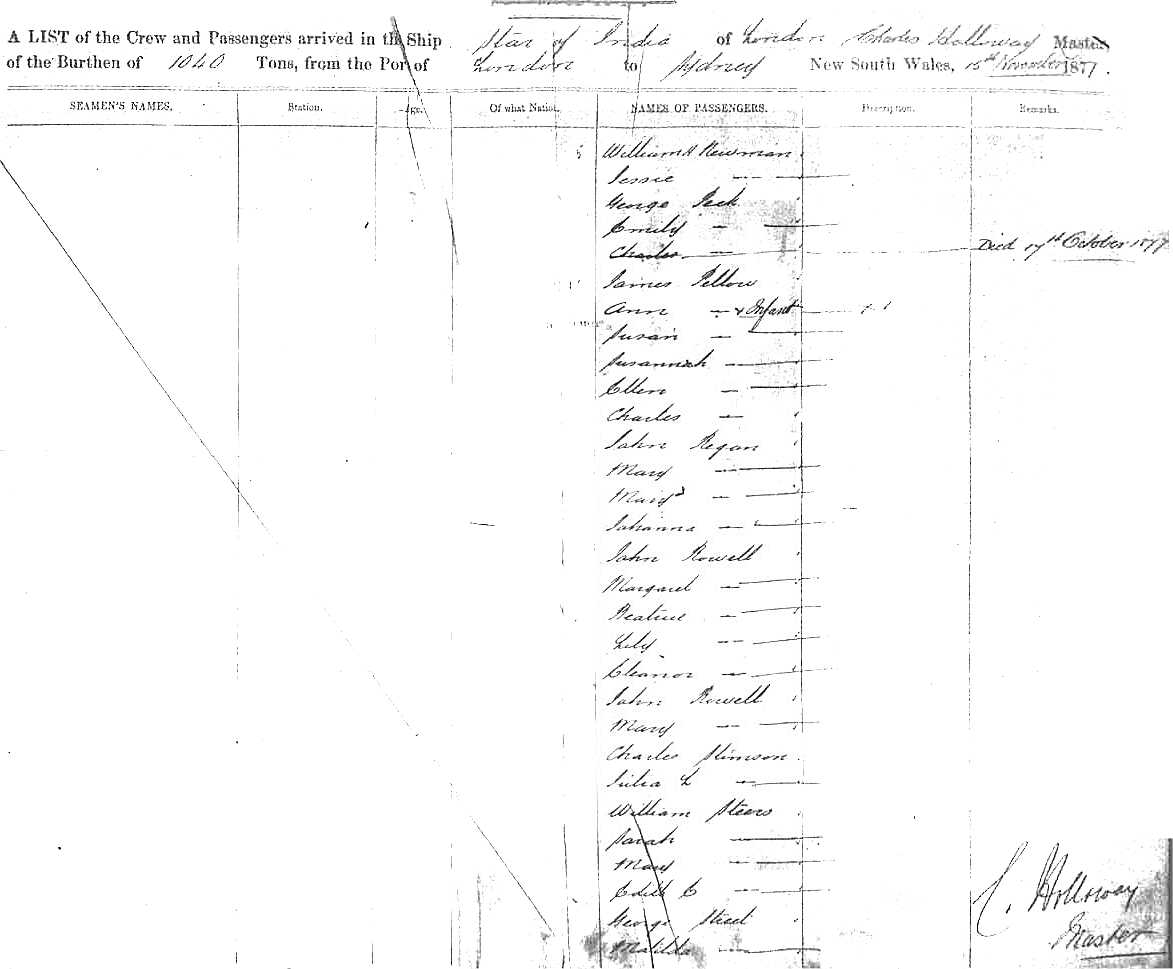 A LIST of the Crew and Passengers arrived in the Ship Star of India of London Charles Holloway Master,
of the Burthen of 1040 Tons, from the Port of London to Sydney New South Wales, 15th November 1877.
SEAMEN'S NAMES. Station. Age. Of what Nation. NAMES OF PASSENGERS. Description. Remarks.
William H Newman
Jessie —
George Peck
Emily —
Charles — Died 17th October 1877
James Pellow
Ann — & Infant
Susan —
Susannah —
Ellen —
Charles —
John Regan
Mary —
Mary —
Johanna —
John Rowell
Margaret —
Beatrice —
Lily —
Eleanor —
John Rowell
Mary —
Charles Stimson
Julia L —
William Steers
Sarah —
Mary —
Edith E —
George Street
Matilda —
C. Holloway
Master